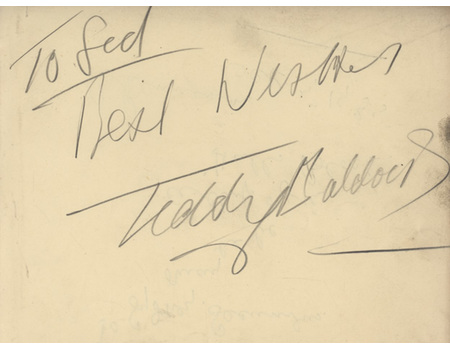 To Ged
Best Wishes
Teddy Baldock